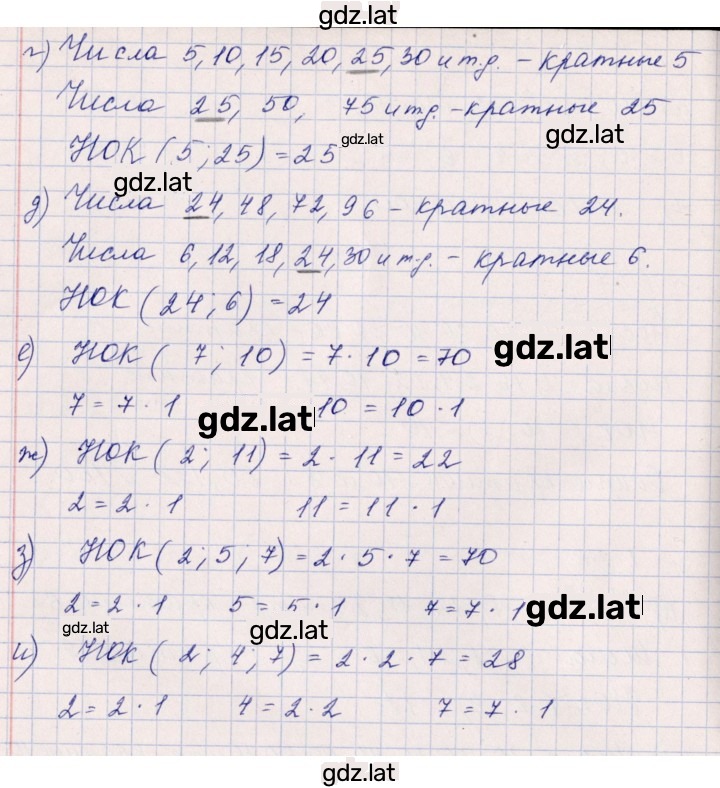 gdz.lat
г) Числа 5, 10, 15, 20, 25, 30 и т.д. - кратные 5
Числа 25, 50, 75 и т.д. - кратные 25
gdz.lat
НОК (5; 25) = 25
gdz.lat
д) Числа 24, 48, 72, 96 - кратные 24.
Числа 6, 12, 18, 24, 30 и т.д. - кратные 6.
НОК (24; 6) = 24
е) НОК ( 7; 10) = 7 · 10 = 70
gdz.lat
7 = 7 · 1 10 = 10 · 1
gdz.lat
ж) НОК ( 2; 11) = 2 · 11 = 22
2 = 2 · 1 11 = 11 · 1
з) НОК ( 2; 5; 7) = 2 · 5 · 7 = 70
2 = 2 · 1 5 = 5 · 1 7 = 7 · 1
gdz.lat
gdz.lat
gdz.lat
и) НОК ( 2; 4; 7) = 2 · 2 · 7 = 28
2 = 2 · 1 4 = 2 · 2 7 = 7 · 1
gdz.lat